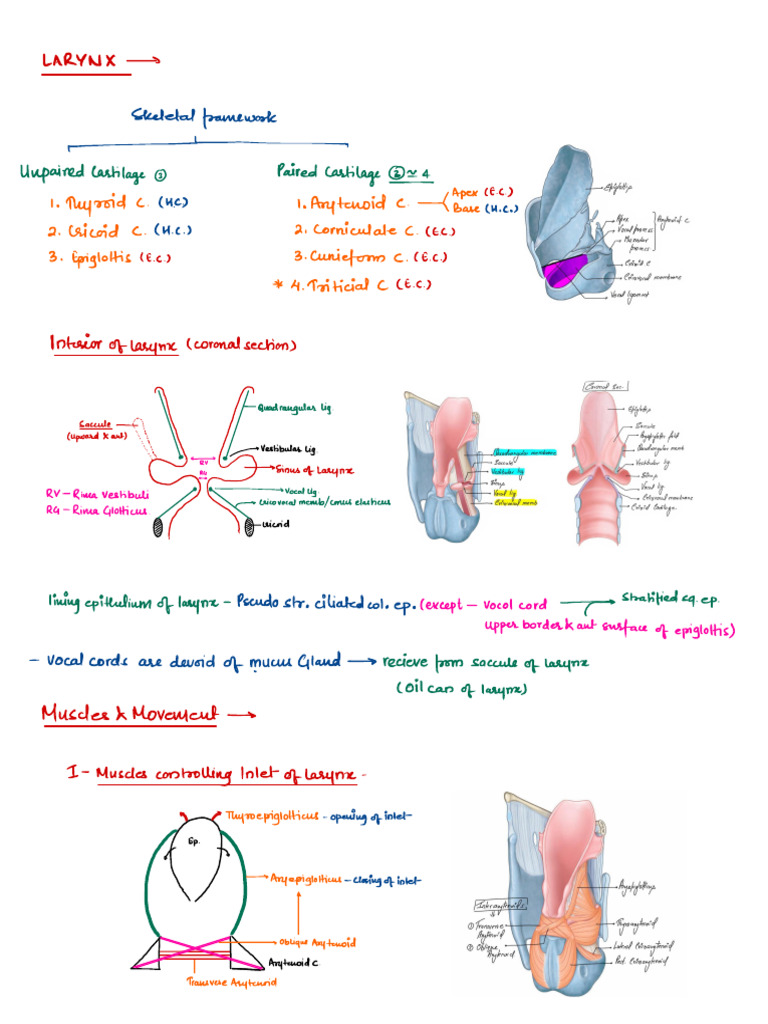 LARYNX →
Skeletal framework
Unpaired Cartilage ③
1. Thyroid C. (H.C)
2. Cricoid C. (H.C.)
3. Epiglottis (E.C.)
Paired Cartilage ③≃4
1. Arytenoid C.
Apex (E.C.)
Base (H.C.)
2. Corniculate C. (E.C)
3. Cunieform C. (E.C.)
* 4. Triticial C (E.C.)
Epiglottis
Apex
Vocal process
Muscular process
Arytenoid c
Cricoid C
Cricovocal membrane
Vocal ligament
Interior of larynx (coronal section)
Saccule
(upward & ant)
Quadrangular lig
Vestibular Lig
RV
Sinus of Larynx
RG
Vocal Lig
Cricovocal memb/conus elasticus
cricoid
RV – Rima Vestibuli
RG – Rima Glotticus
Quadrangular membrane
Saccule
Vestibular lig
Sinus
Vocal lig
Cricovocal memb
Coronal sec.
Epiglottis
Saccule
Aryepiglottic fold
Quadrangular memb
Vestibular lig
Sinus
Vocal lig
Cricovocal membrane
Cricoid Cartilage
lining epithelium of larynx – Pseudo str. ciliated col. ep. (except – vocal cord
stratified sq. ep.
upper border & ant surface of epiglottis)
– vocal cords are devoid of mucus Gland → recieve from saccule of larynx
(oil can of larynx)
Muscles & Movement →
I – Muscles controlling Inlet of larynx –
Thyroepiglotticus – opening of inlet
Ep.
Aryepiglotticus – closing of inlet
oblique Arytenoid
Arytenoid C
Transverse Arytenoid
Interarytenoids
① Transverse Arytenoid
② Oblique Arytenoid
Aryepiglotticus
Thyroarytenoid
Lateral Cricoarytenoid
Post. Cricoarytenoid